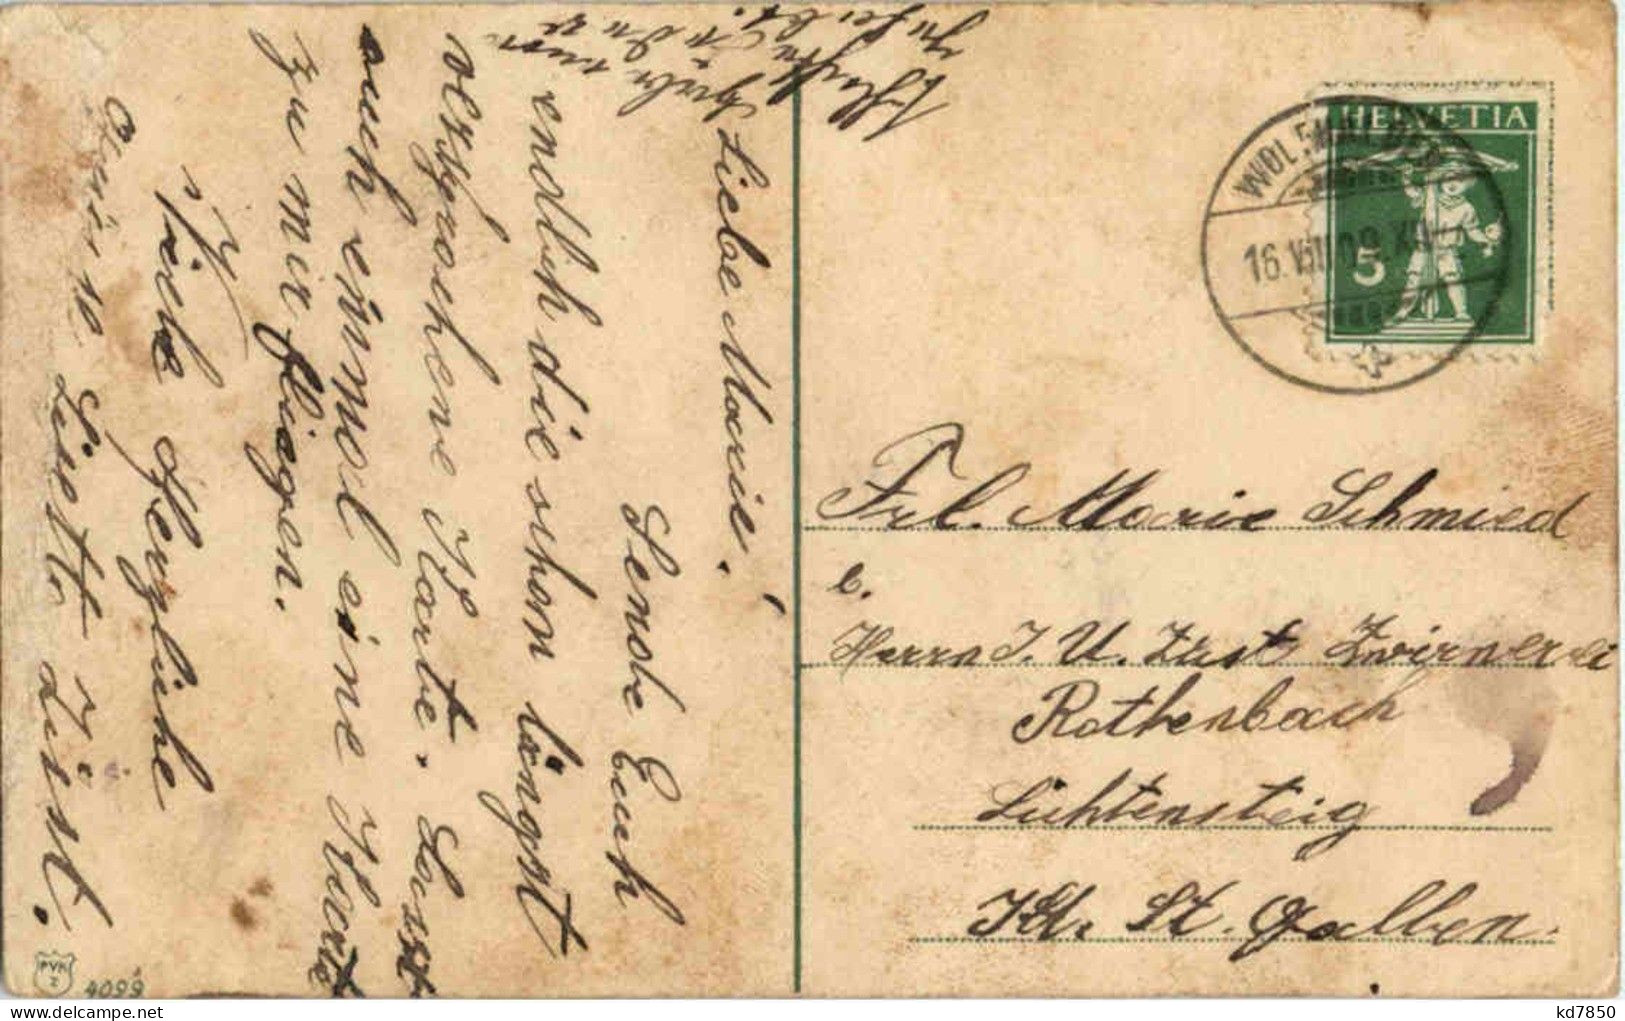 Liebe Marie.
Sende Euch
endlich die schon längst
versprochene Karte. Lasst
auch einmal eine Karte
zu mir fliegen.
Viele Herzliche
Grüsse Lisette Züst.
HELVETIA
5
16.VIII.09.XII
Frl. Marie Schmied
b.
Herrn J. U. Züst Zwirnerei
Rothenbach
Lichtensteig
Kt. St. Gallen.
PVK
Z
4099
kd7850